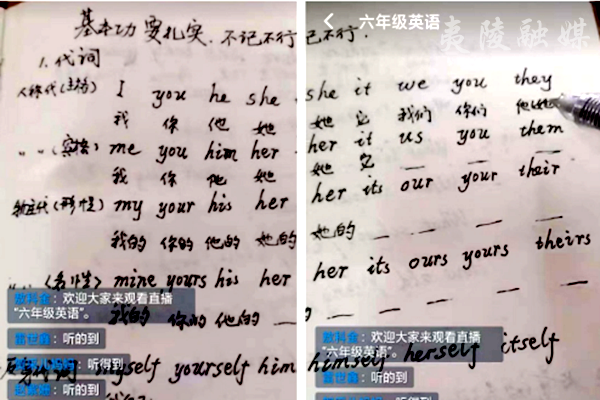 基本功要扎实.不记不行
1.代词
人称代(主格) I you he she
我 你 他 她
〃 〃 (宾格) me you him her
我 你 他 她
物主代(形性) my your his her
我的 你的 他的 她的
〃 〃 (名性) mine yours his her
我的 你的 他的
反身代词 myself yourself him
欢迎大家来观看直播
“六年级英语”。
听的到
听得到
听的到
六年级英语
夷陵融媒
记不行.
she it we you they
她 它 我们 你们 他她
her it us you them
她 它
her its our your their
她的
her its ours yours theirs
himself herself itself
欢迎大家来观看直播
“六年级英语”。
听的到
听得到